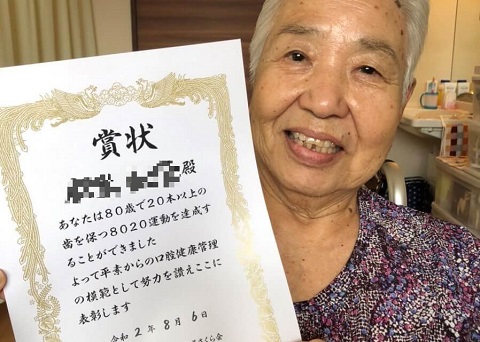 賞状
殿
あなたは80歳で20本以上の
歯を保つ8020運動を達成す
ることができました
よって平素からの口腔健康管理
の模範として努力を讃えここに
表彰します
令和2年8月6日
さくら会